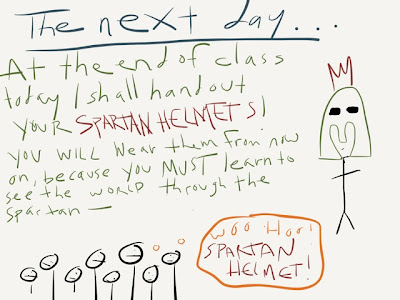 The next day...
At the end of class
today I shall hand out
your SPARTAN HELMETS!
YOU WILL wear them from now
on, because you MUST learn to
see the WORLD through the
Spartan —
WOO HOO!
SPARTAN
HELMET!